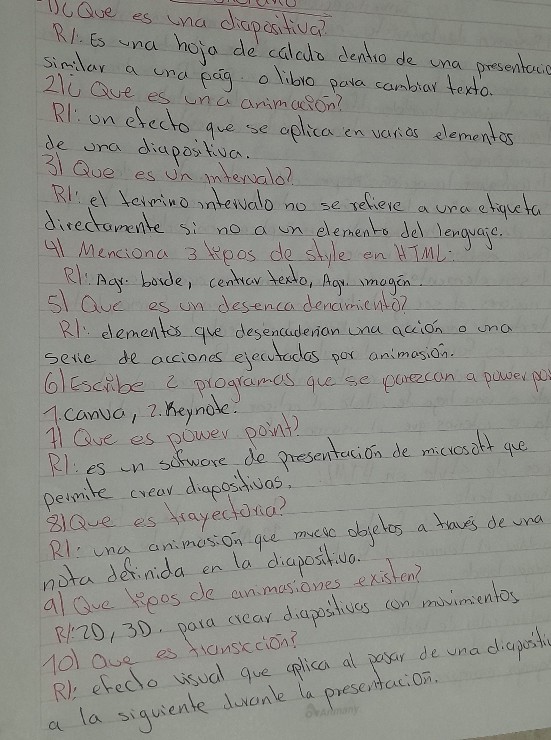 1)¿Que es una diapositiva?
R/. Es una hoja de calculo dentro de una presentacio
similar a una pág. o libro para cambiar texto.
2)¿ Que es una animacion?
R/: un efecto que se aplica en varios elementos
de una diapositiva.
3) Que es un intervalo?
R/: el termino intervalo no se refiere a una etiqueta
directamente si no a un elemento del lenguaje.
4) Menciona 3 tipos de style en HTML:
R/: Agr. borde, centrar texto, Agr. imagen.
5) Que es un desencadenamiento?
R/: elementos que desencadenan una acción o una
serie de acciones ejecutadas por animasión.
6) Escribe 2 programas que se parezcan a power po
1. Canva, 2. Keynote.
7) Que es power point?
R/: es un sofware de presentación de microsoft que
permite crear diapositivas.
8) Que es trayectoria?
R/: una animasión que mueve objetos a través de una
nota definida en la diapositiva.
9) Que tipos de animasiones existen?
R/: 2D, 3D. para crear diapositivas con movimientos
10) Que es transicción?
R/: efecto visual que aplica al pasar de una diapositi
a la siguiente durante la presentación.